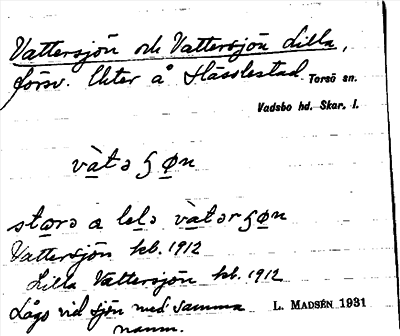 Vattersjön och Vattersjön Lilla,
försv. lhter å Hässlestad Torsö sn.
Vadsbo hd. Skar. l.
vàtə ʂøn
stɷrə a lɩlə vàtərʂøn
Vattersjön kb. 1912
Lilla Vattersjön kb. 1912
Lågo vid sjön med samma L. MADSÉN 1931
namn.